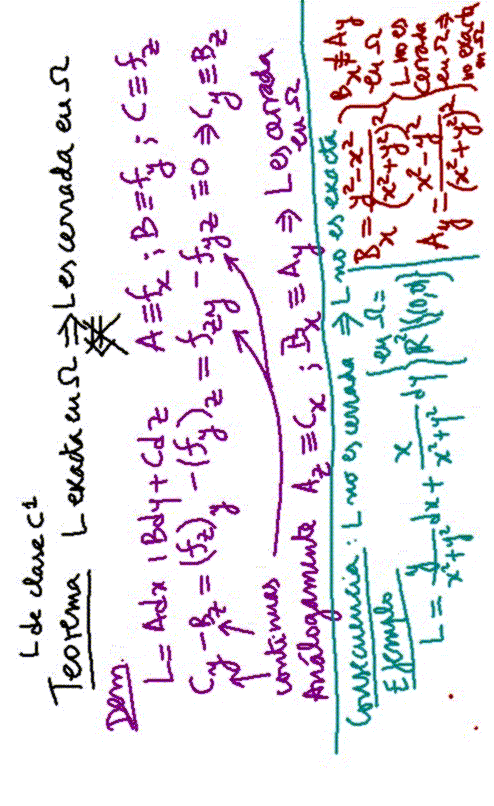 L de clase C¹
Teorema L exacta en Ω ⇒ L es cerrada en Ω
⇍
Dem.
L = Adx + Bdy + Cdz A ≡ f_x ; B ≡ f_y ; C ≡ f_z
C_y − B_z = (f_z)_y − (f_y)_z = f_zy − f_yz ≡ 0 ⇒ C_y ≡ B_z
continuas
Análogamente A_z ≡ C_x ; B_x ≡ A_y ⇒ L es cerrada
en Ω
Consecuencia : L no es cerrada ⇒ L no es exacta
Ejemplo
L = y/(x²+y²) dx + x/(x²+y²) dy } en Ω = R²\{(0,0)}
B_x = (y²−x²)/(x²+y²)²
A_y = (x²−y²)/(x²+y²)²
B_x ≢ A_y
en Ω
L no es
cerrada
en Ω ⇒
no exacta
en Ω